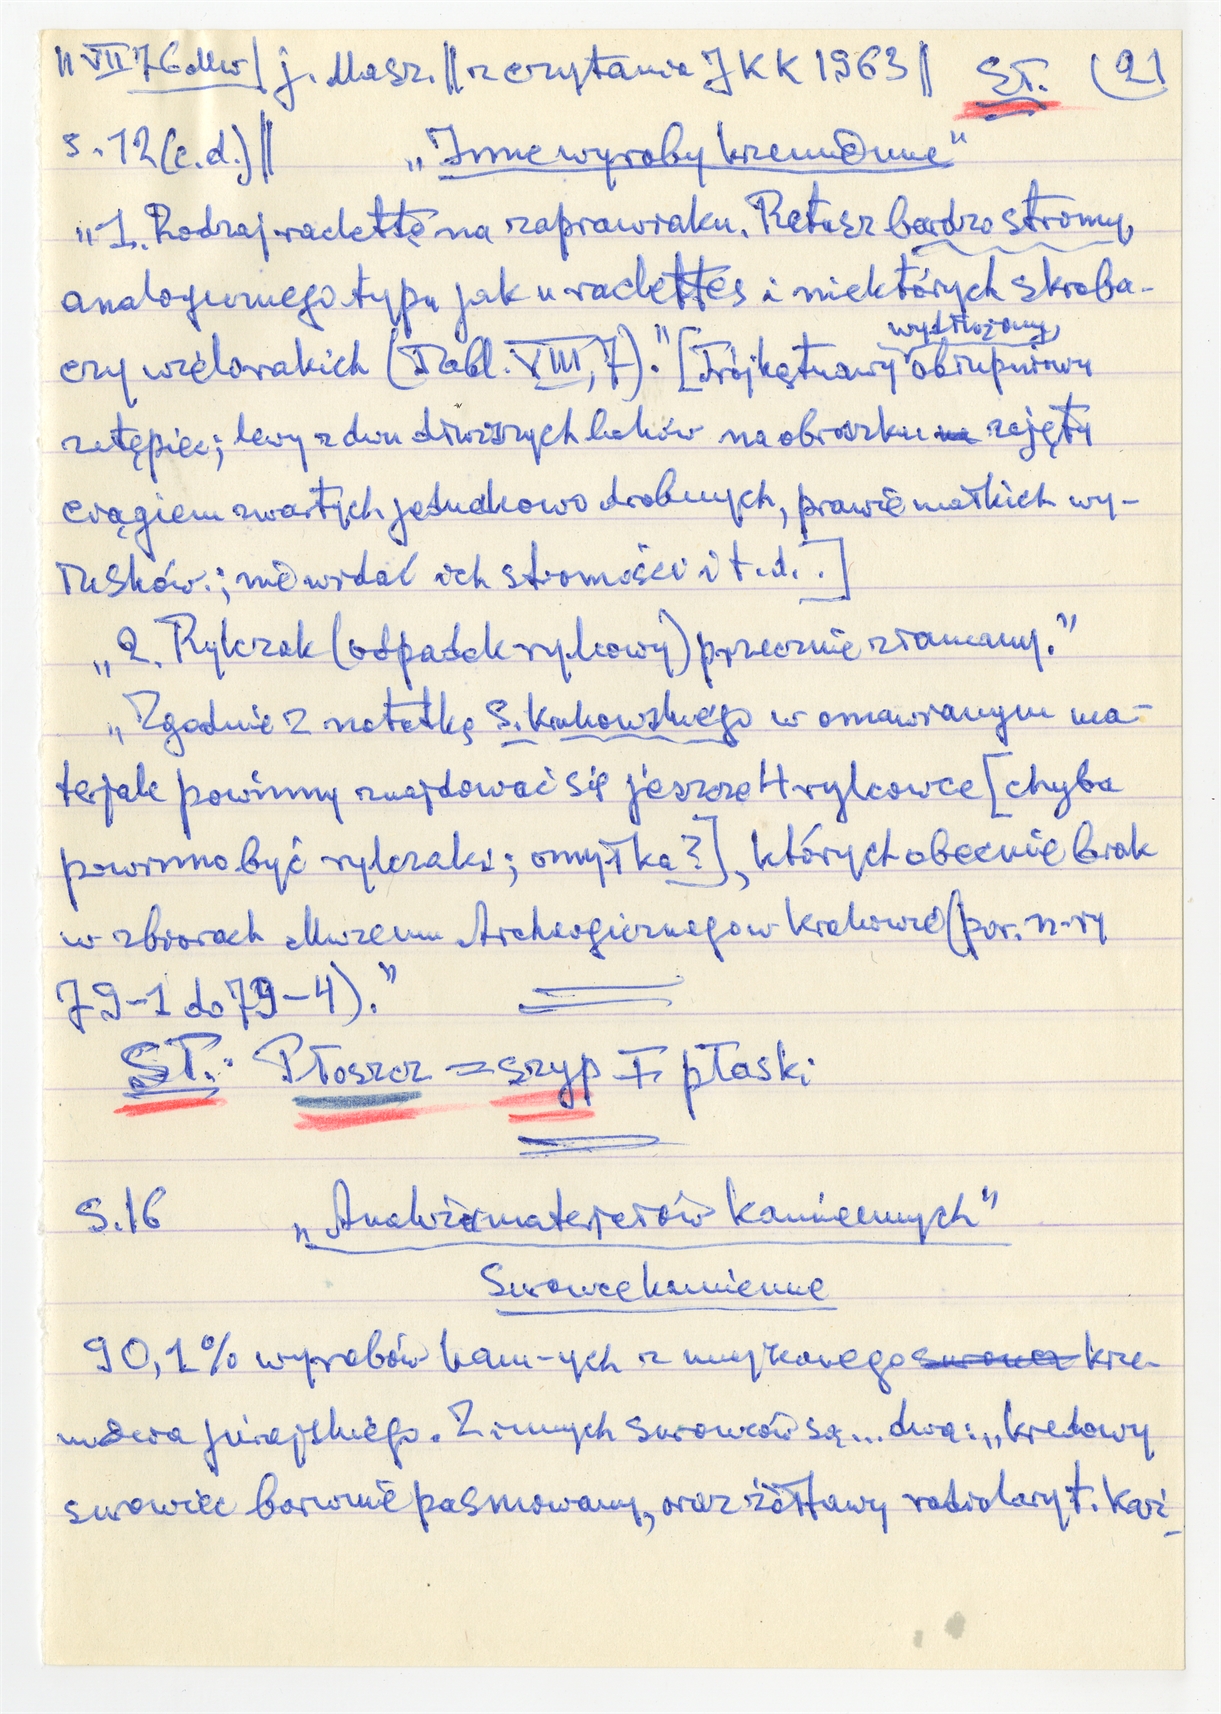 11 VII 76 Mw | j. Masz. || z czytania JKK 1963 || ST. (21
s. 12 (c.d.) || „Inne wyroby krzemienne"
„1. Rodzaj raclette na zaprawiaku. Retusz bardzo stromy,
analogicznego typu jak u raclettes i niektórych skroba-
czy węłowatych (Tabl. VIII, 7)." [Trójkątnawy wydłużony,
zatępiec; lewy z dwu dłuższych boków na obrazku na zajęty
ciągiem zwartych jednakowo drobnych, prawie miałkich wy-
łusków.; nie widać ich stromości i t.d. .]
„2. Rylczak (odpadek rylcowy) poprzecznie złamany."
„Zgodnie z notatką S. Krukowskiego w omawianym ma-
terjale powinny znajdować się jeszcze 4 rylcowce [chyba
powinno być rylczaki; omyłka?], których obecnie brak
w zbiorach Muzeum Archeogicznego w Krakowie (por. n-ry
79-1 do 79-4)."
ST.: Płoszcz = szyp I płaski
S. 16 „Analiza materjałów kamiennych"
Surowce kamienne
90,1% wyrobów kam-ych z miejscowego surowca krze-
mienia jurajskiego. Z innych surowców są... dwa: „kredowy
surowiec barwnie pasmowany, oraz żółtawy radiolaryt. Każ-